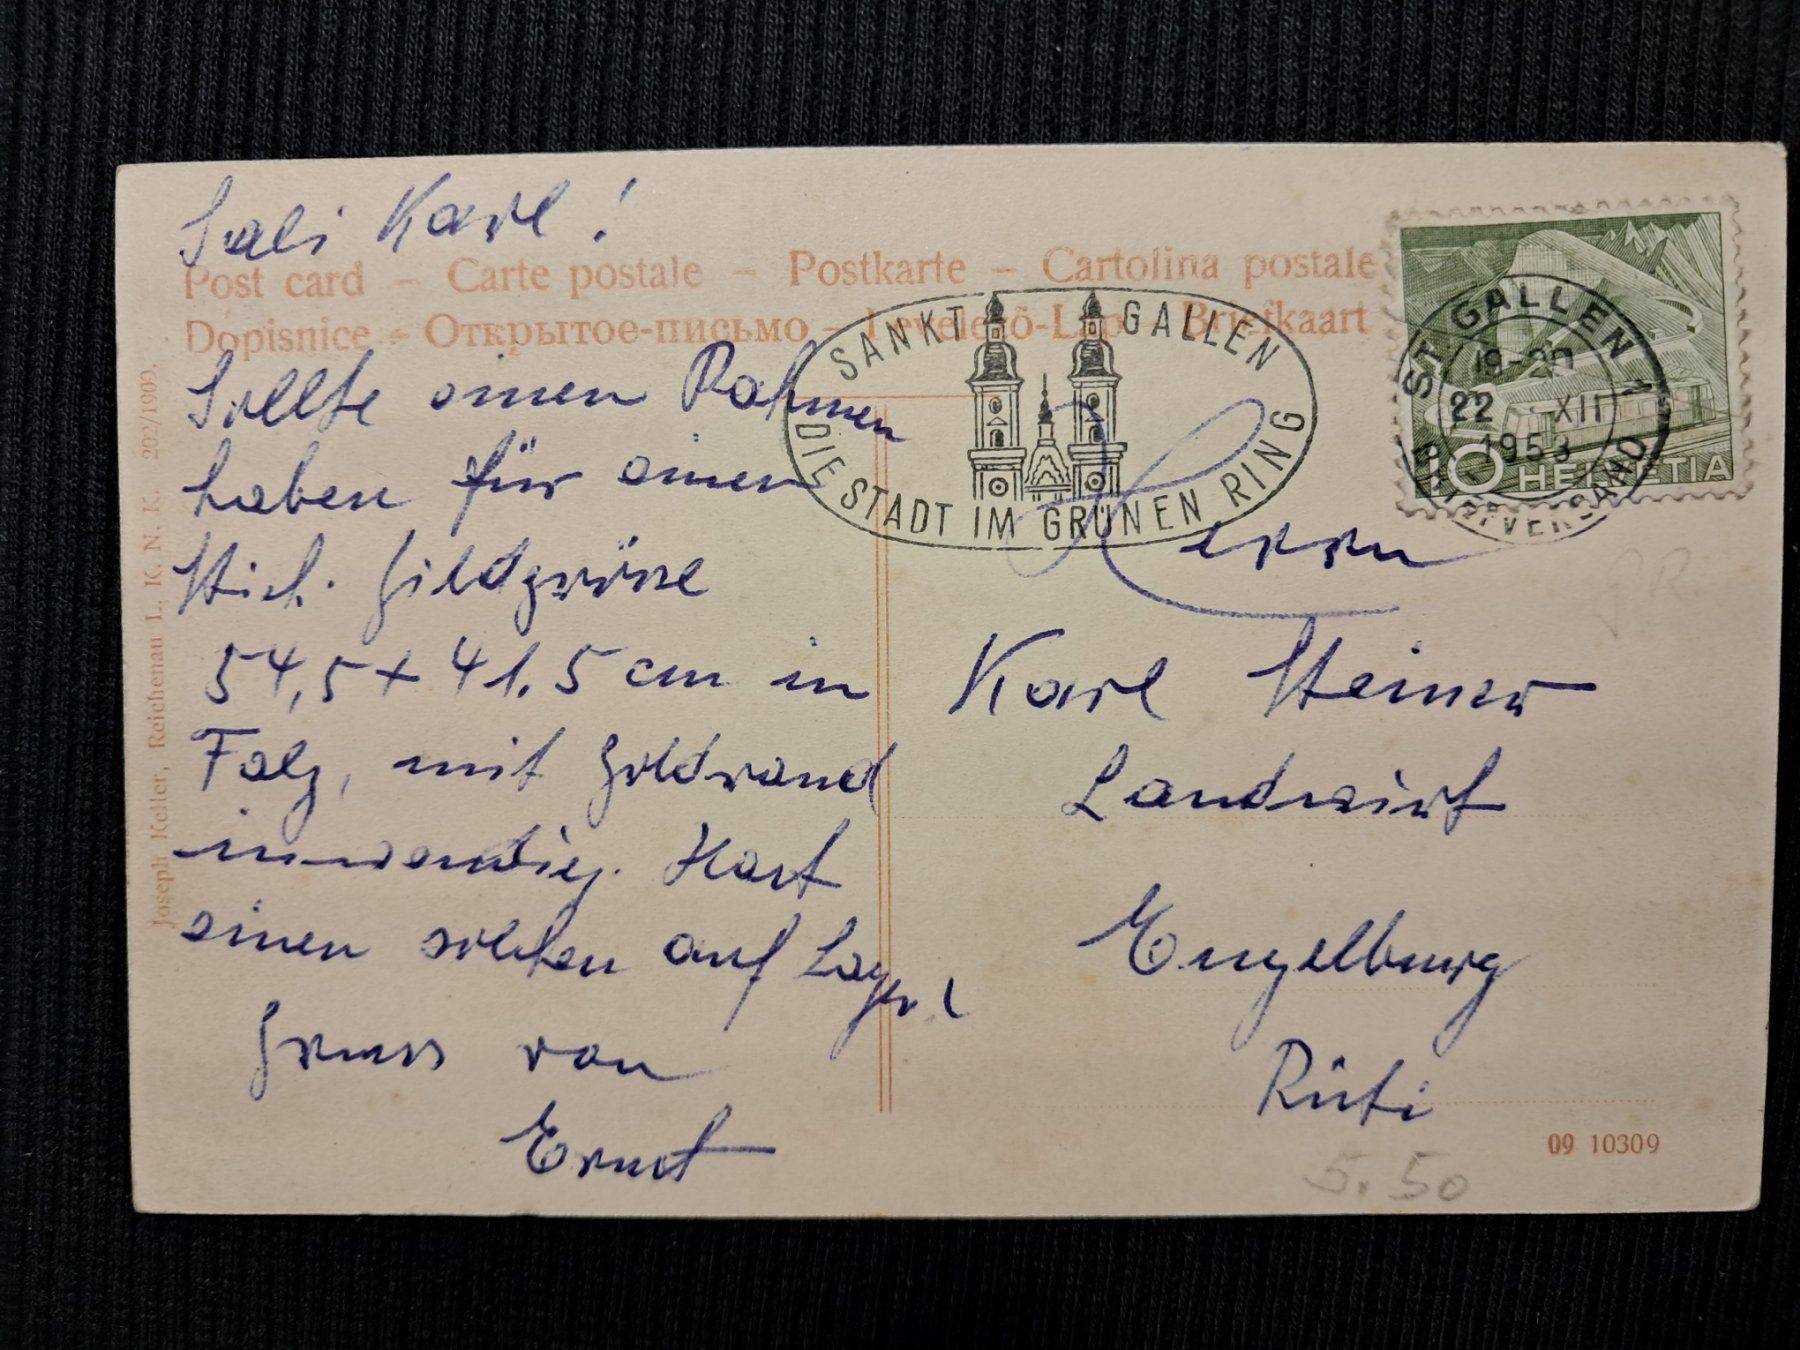 Sali Karl!
Post card – Carte postale – Postkarte – Cartolina postale
Dopisnice – Открытое-письмо – Levelező-Lap – Briefkaart
Sollte einen Rahmen
haben für einen
Stich. Bildgrösse
54,5 + 41.5 cm in
Falz, mit Goldrand
inwendig. Hast
einen solchen auf Lager!
Gruss von
Ernst
SANKT GALLEN
DIE STADT IM GRÜNEN RING
ST. GALLEN
19-20
22 XII
1953
BRIEFVERSAND
10 HELVETIA
Herrn
Karl Steiner
Landwirt
Engelburg
Rüti
09 10309
5.50
Joseph Keller, Reichenau I. K. N. K. 202/1909.